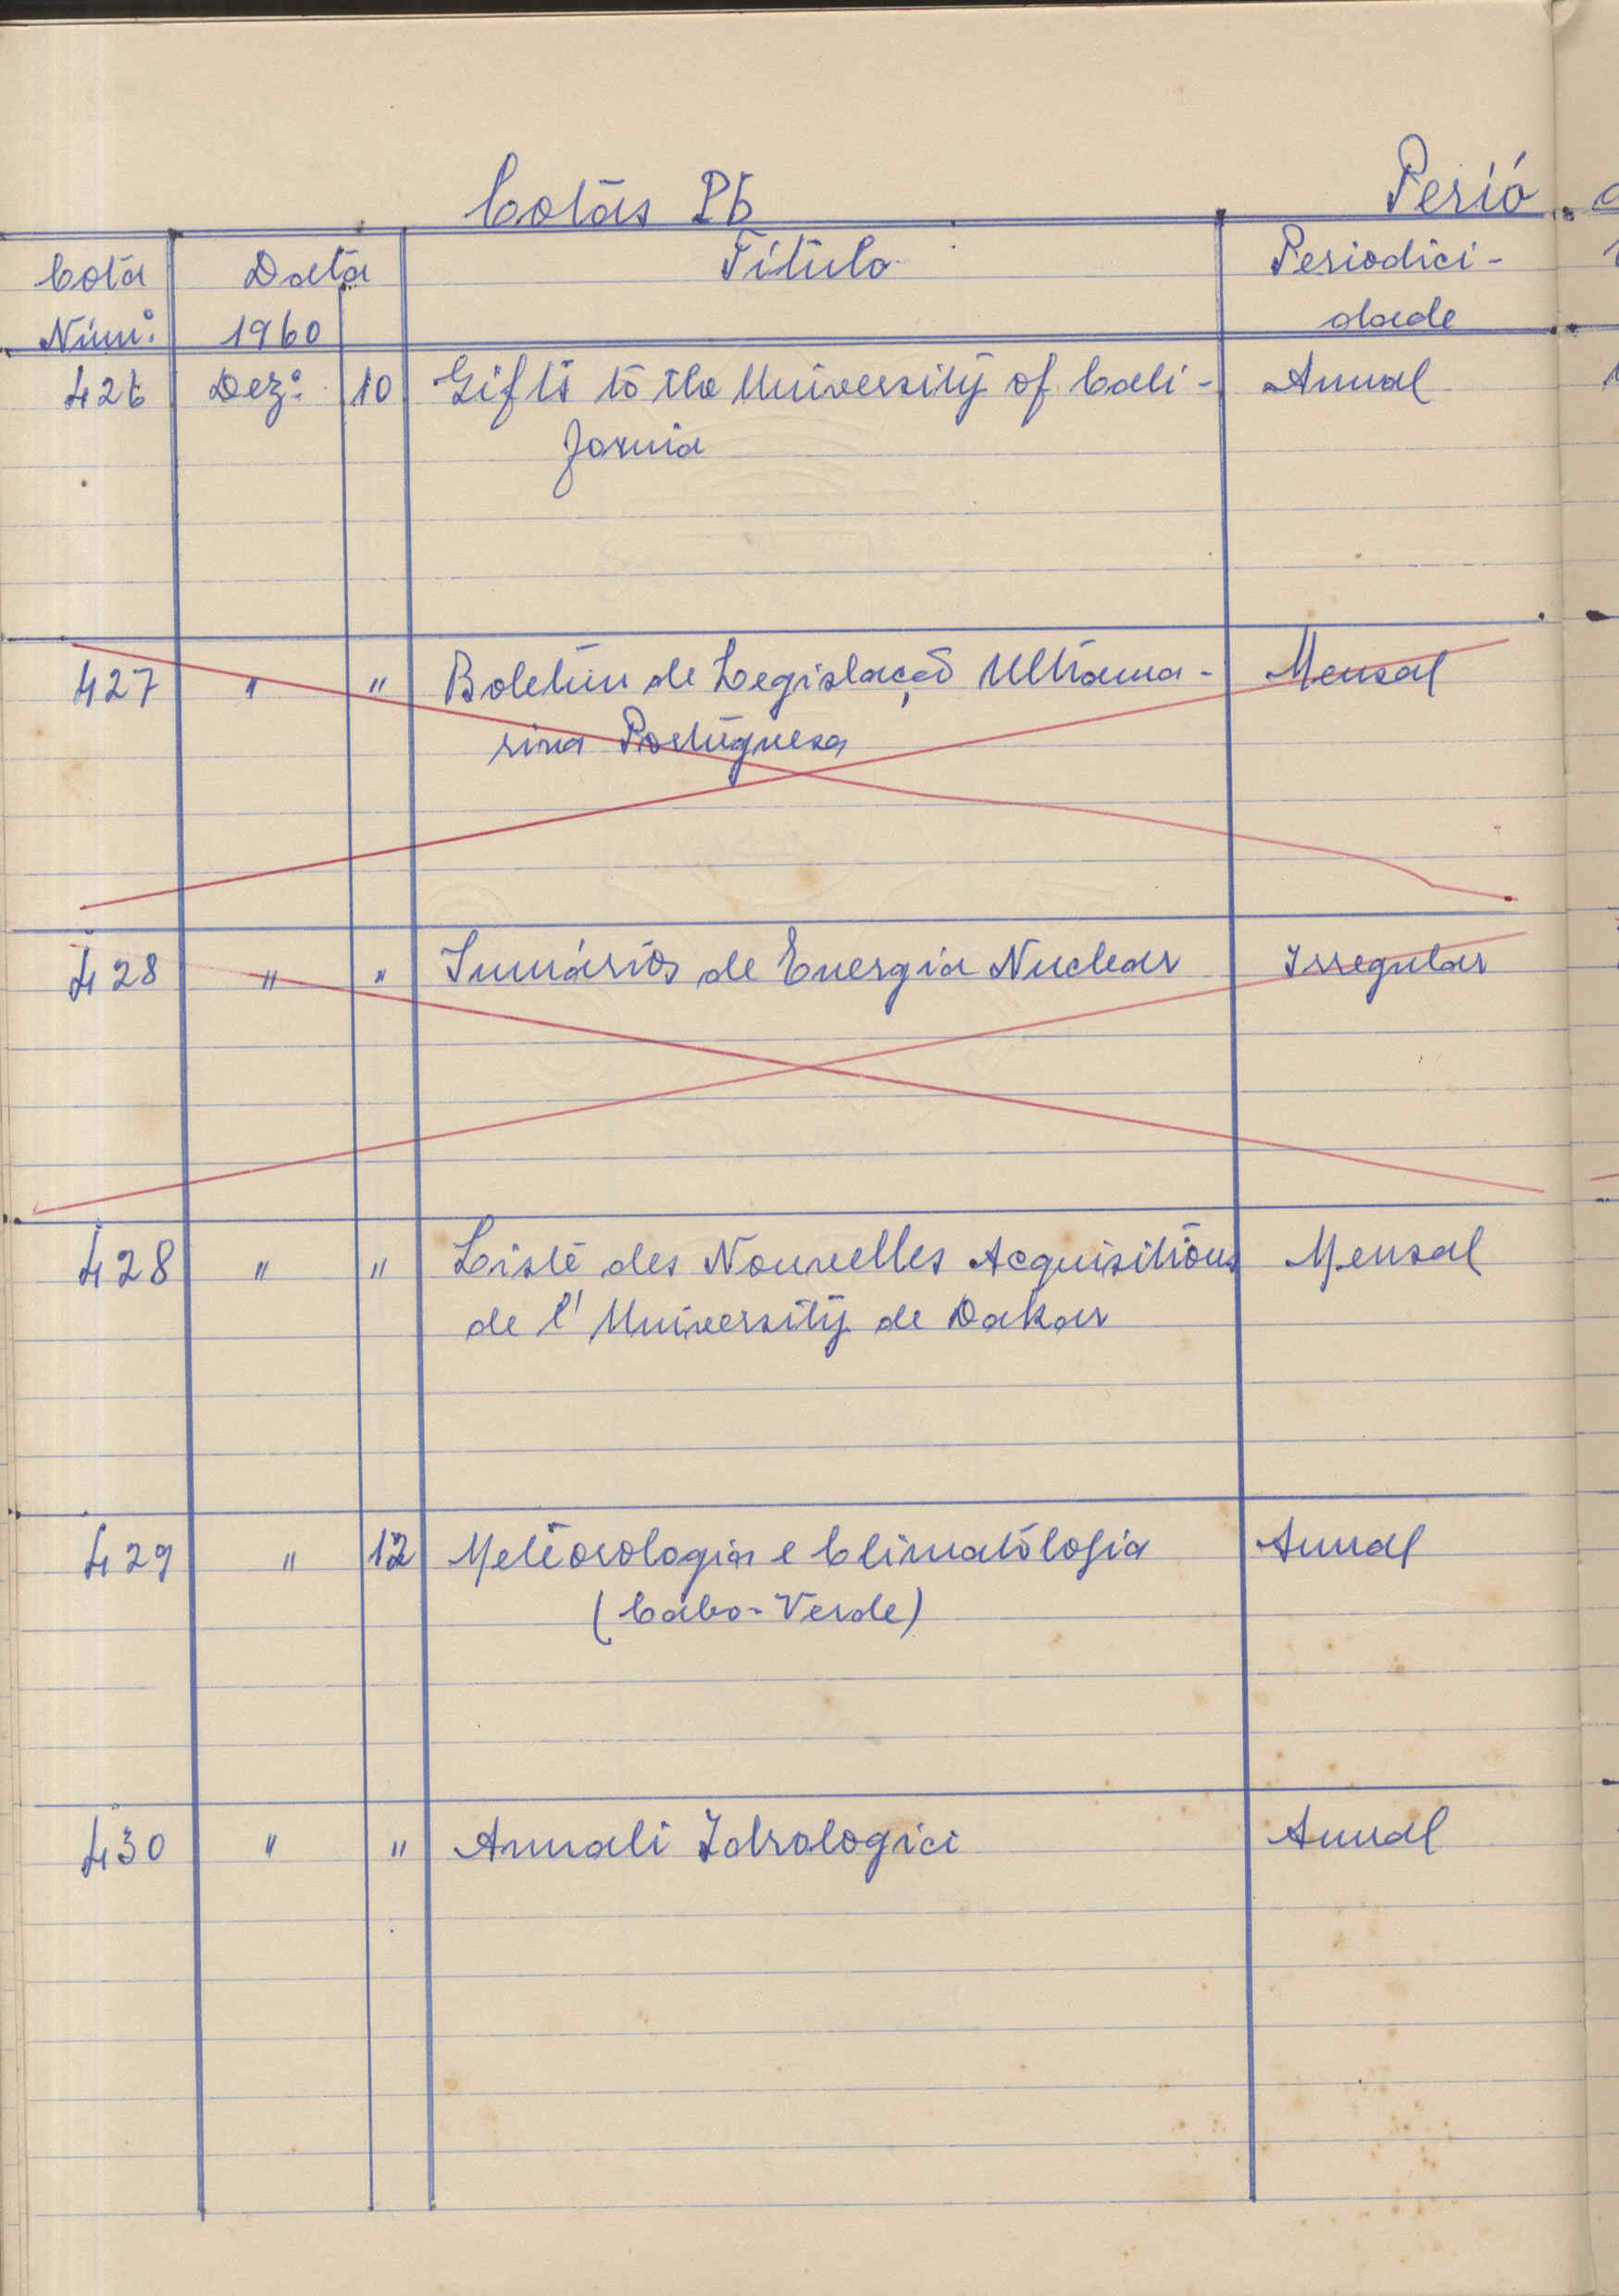 Cotas Pb Perió
Cota Data Título Periodici-
Núm.º 1960 dade
426 Dez.º 10 Gifts to the University of Cali- Anual
fornia
427 " " Boletim de Legislação Ultrama- Mensal
rina Portuguesa
428 " " Sumários de Energia Nuclear Irregular
428 " " Liste des Nouvelles Acquisitions Mensal
de l' University de Dakar
429 " 12 Meteorologia e Climatologia Anual
(Cabo-Verde)
430 " " Annali Idrologici Anual